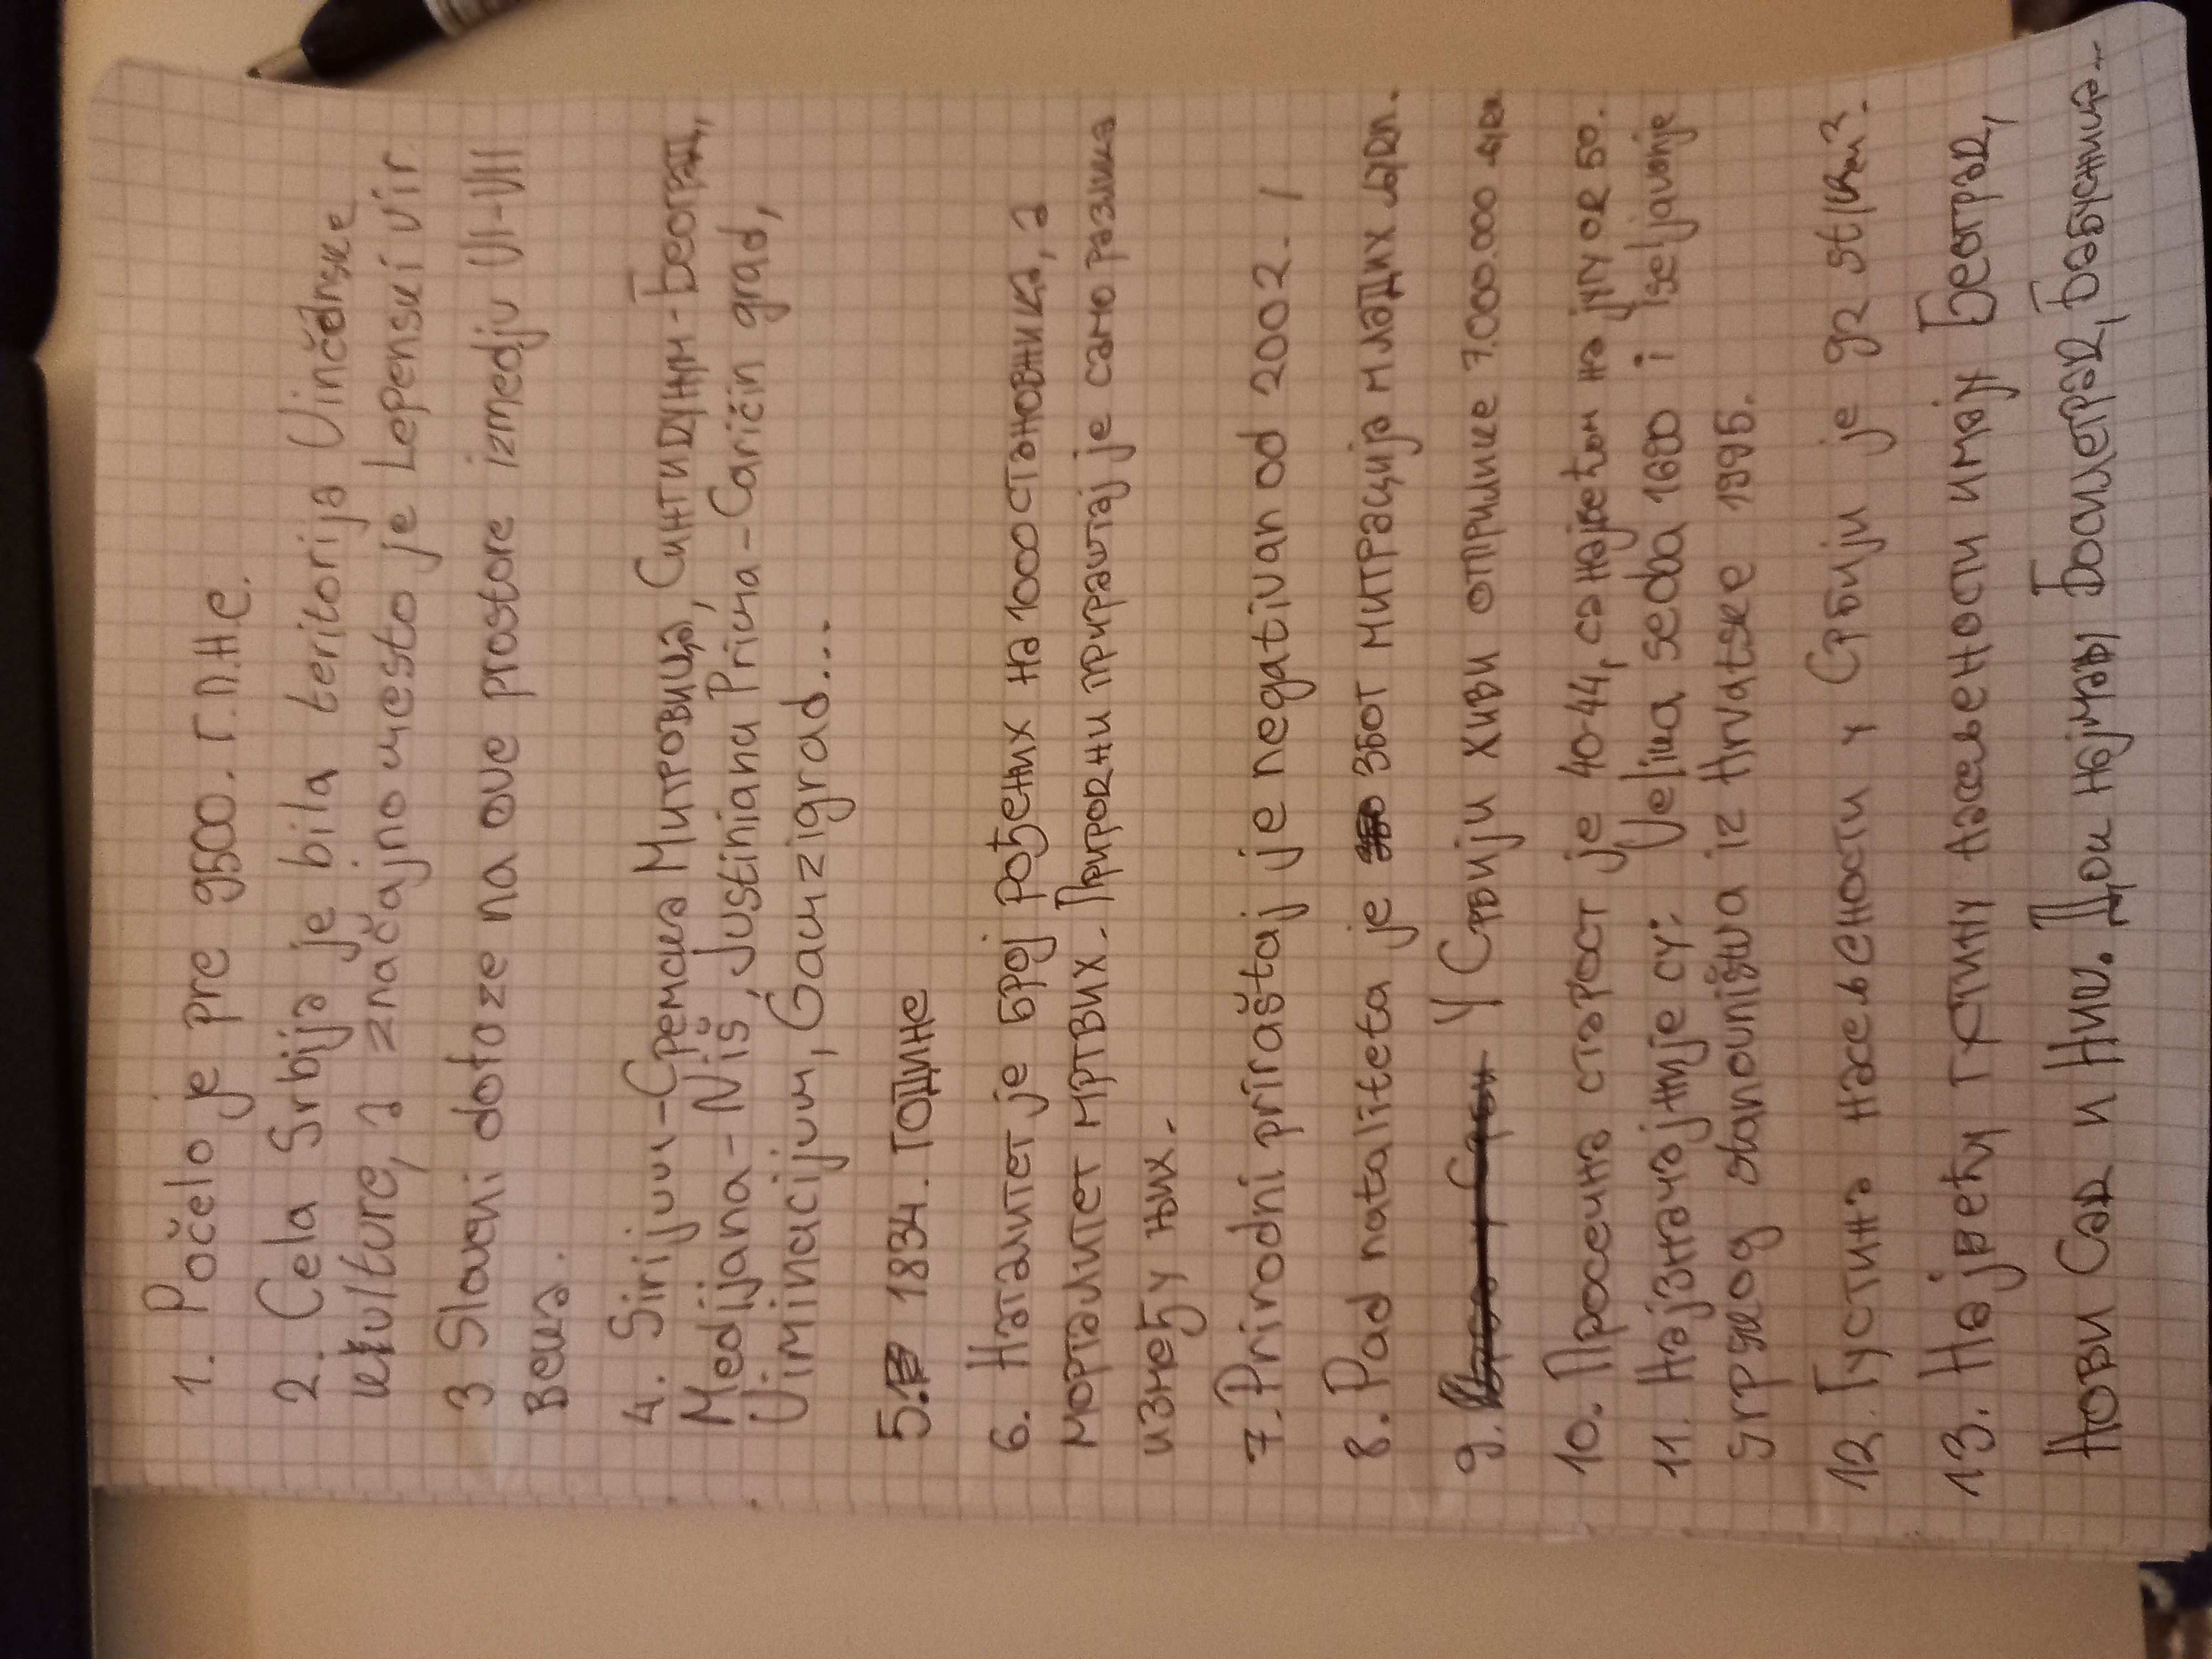 1. Počelo je pre 9500. г.п.н.е.
2. Cela Srbija je bila teritorija Vinčanske
kulture, a značajno mesto je Lepenski vir
3 Sloveni dolaze na ove prostore izmedju VI-VII
века.
4. Sirijum-Сремска Митровица, Сингидунум-Београд,
Medijana-Niš, Justiniana Prima-Caričin grad,
Viminacijum, Gamzigrad...
5. 1834. године
6. Наталитет је број рођених на 1000 становника, а
морталитет мртвих. Природни прираштај је само разлика
између њих.
7. Prirodni priraštaj je negativan od 2002.
8. Pad nataliteta je због миграција младих људи.
9. У Србији живи отприлике 7.000.000 људи
10. Просечна старост је 40-44, са највећом на југу од 50.
11. Најзначајније су: Velika seoba 1690 i Iseljavanje
srpskog stanovništva iz Hrvatske 1995.
12. Густина насељености у Србији је 92 st/km².
13. Највећу густину насељености имају Београд,
Нови Сад и Ниш. Док најмању Босилеград, Бабушница...